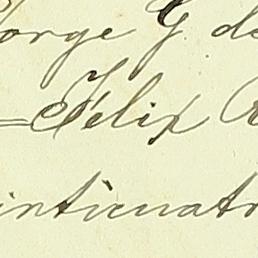 orge G. de
= Félix
inticuatr